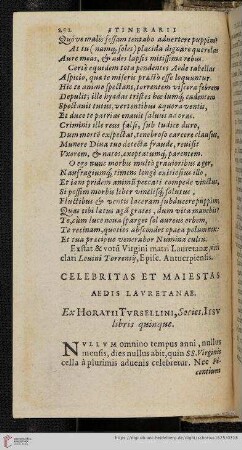 ITINERARII
Quóve malis fessam tentabo advertere puppim?
At tu (namq; soles) placida dignare querelas
Aure meas, & ades lapsis mitissima rebus.
Certè equidem tota pendentes Aede tabellas
Aspicio, quæ te miseris præstò esse loquuntur.
Hic te animo spectans, torrentem viscera febrem
Depulit; ille hyadas tristes
Spectavit tutus, vertentibus æquora ventis,
Et duce te patrias enavit salvus ad oras.
Criminis ille reus falsi, sub iudice duro,
Dum mortē expectat, tenebroso carcere clausus,
Munere Diva tuo detecta fraude, revisit
Vxorem, & natos, exoptatumq; parentem.
O ego nunc morbis multò gravioribus æger,
Naufragiumq; timens longè exitiosius illo,
Et iam pridem animū peccati compede vinctus,
Si possim morbis liber venclisq; salutem,
Fluctibus & ventis laceram subducere puppim,
Quas tibi lætus agā grates, dum vita manebit?
Te, cùm luce nova spargit sol aureus orbem,
Te recinam, quoties abscondet opaca polum nox:
Et tua præcipuè venerabor Numina cultu.
Exstat & votū Virgini matri Lauretanæ, nomine
clari Levini Torrentij, Episc. Antuerpiensis.
CELEBRITAS ET MAIESTAS
AEDIS LAVRETANAE.
Ex HORATII TVRSELLINI, Societ. IESV
libris quinque.
NVLLVM omnino tempus anni, nullus
mensis, dies nullus abit, quin SS. Virginis
cella à plurimis advenis celebretur. Nec Pi-
centium